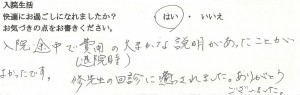 入院生活
快適にお過ごしになれましたか？
お気づきの点をお書きください。
はい ・ いいえ
入院中で費用の大まかな説明があったことが
(退院時)
よかったです。
先生の回診に癒されました。ありがとう
ございました。